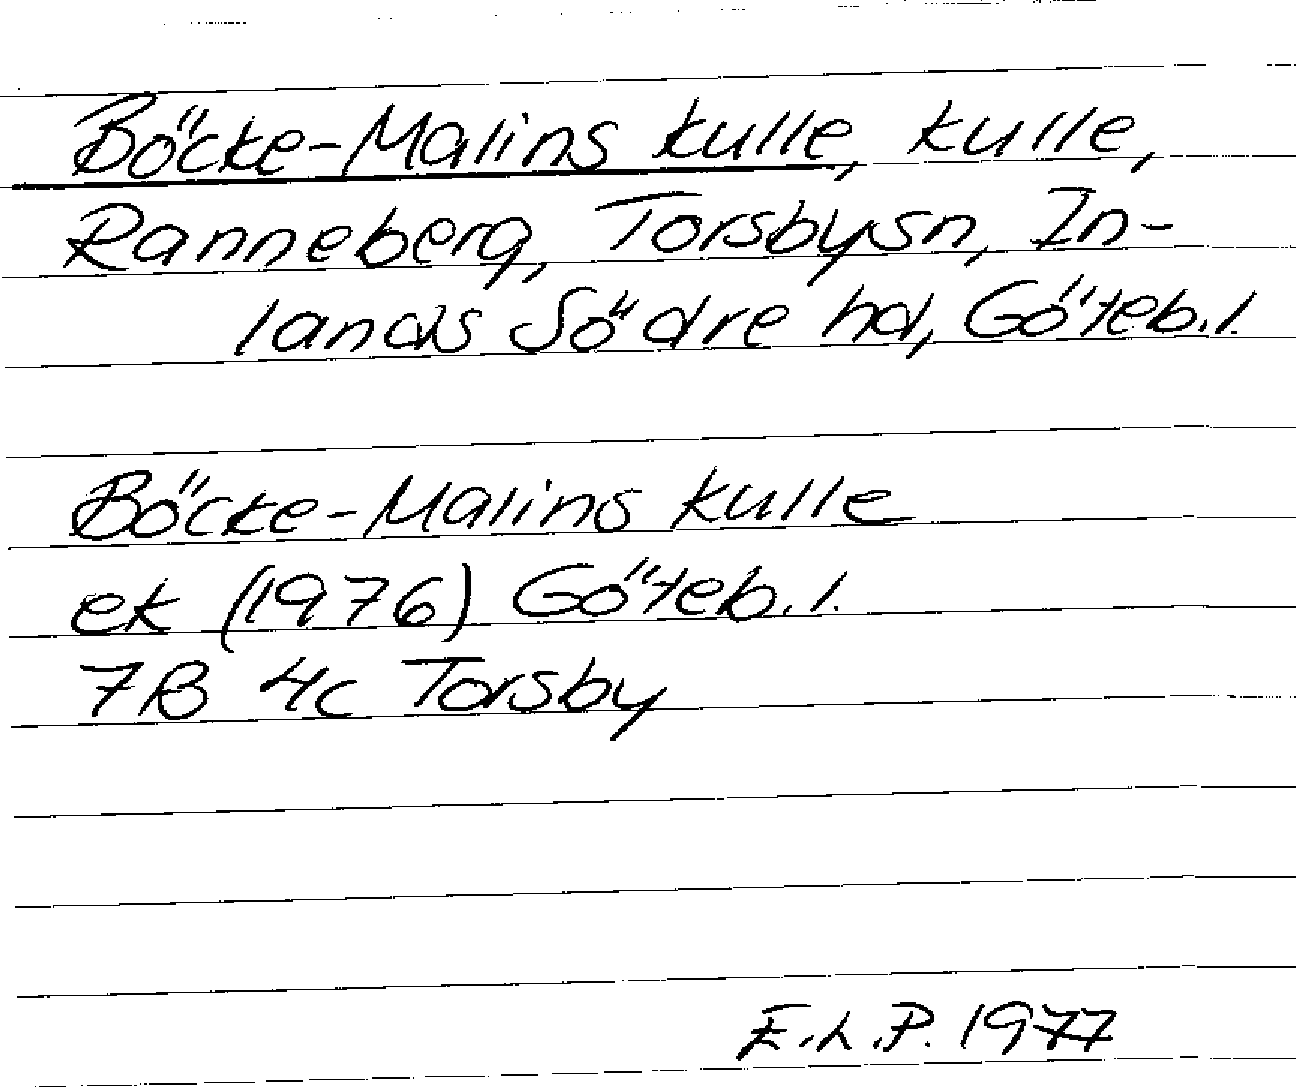 Böcke-Malins kulle, kulle,
Ranneberg, Torsbysn, In-
lands Södre hd, Göteb.l.
Böcke-Malins kulle
ek (1976) Göteb.l.
7B 4c Torsby
E.L.P. 1977